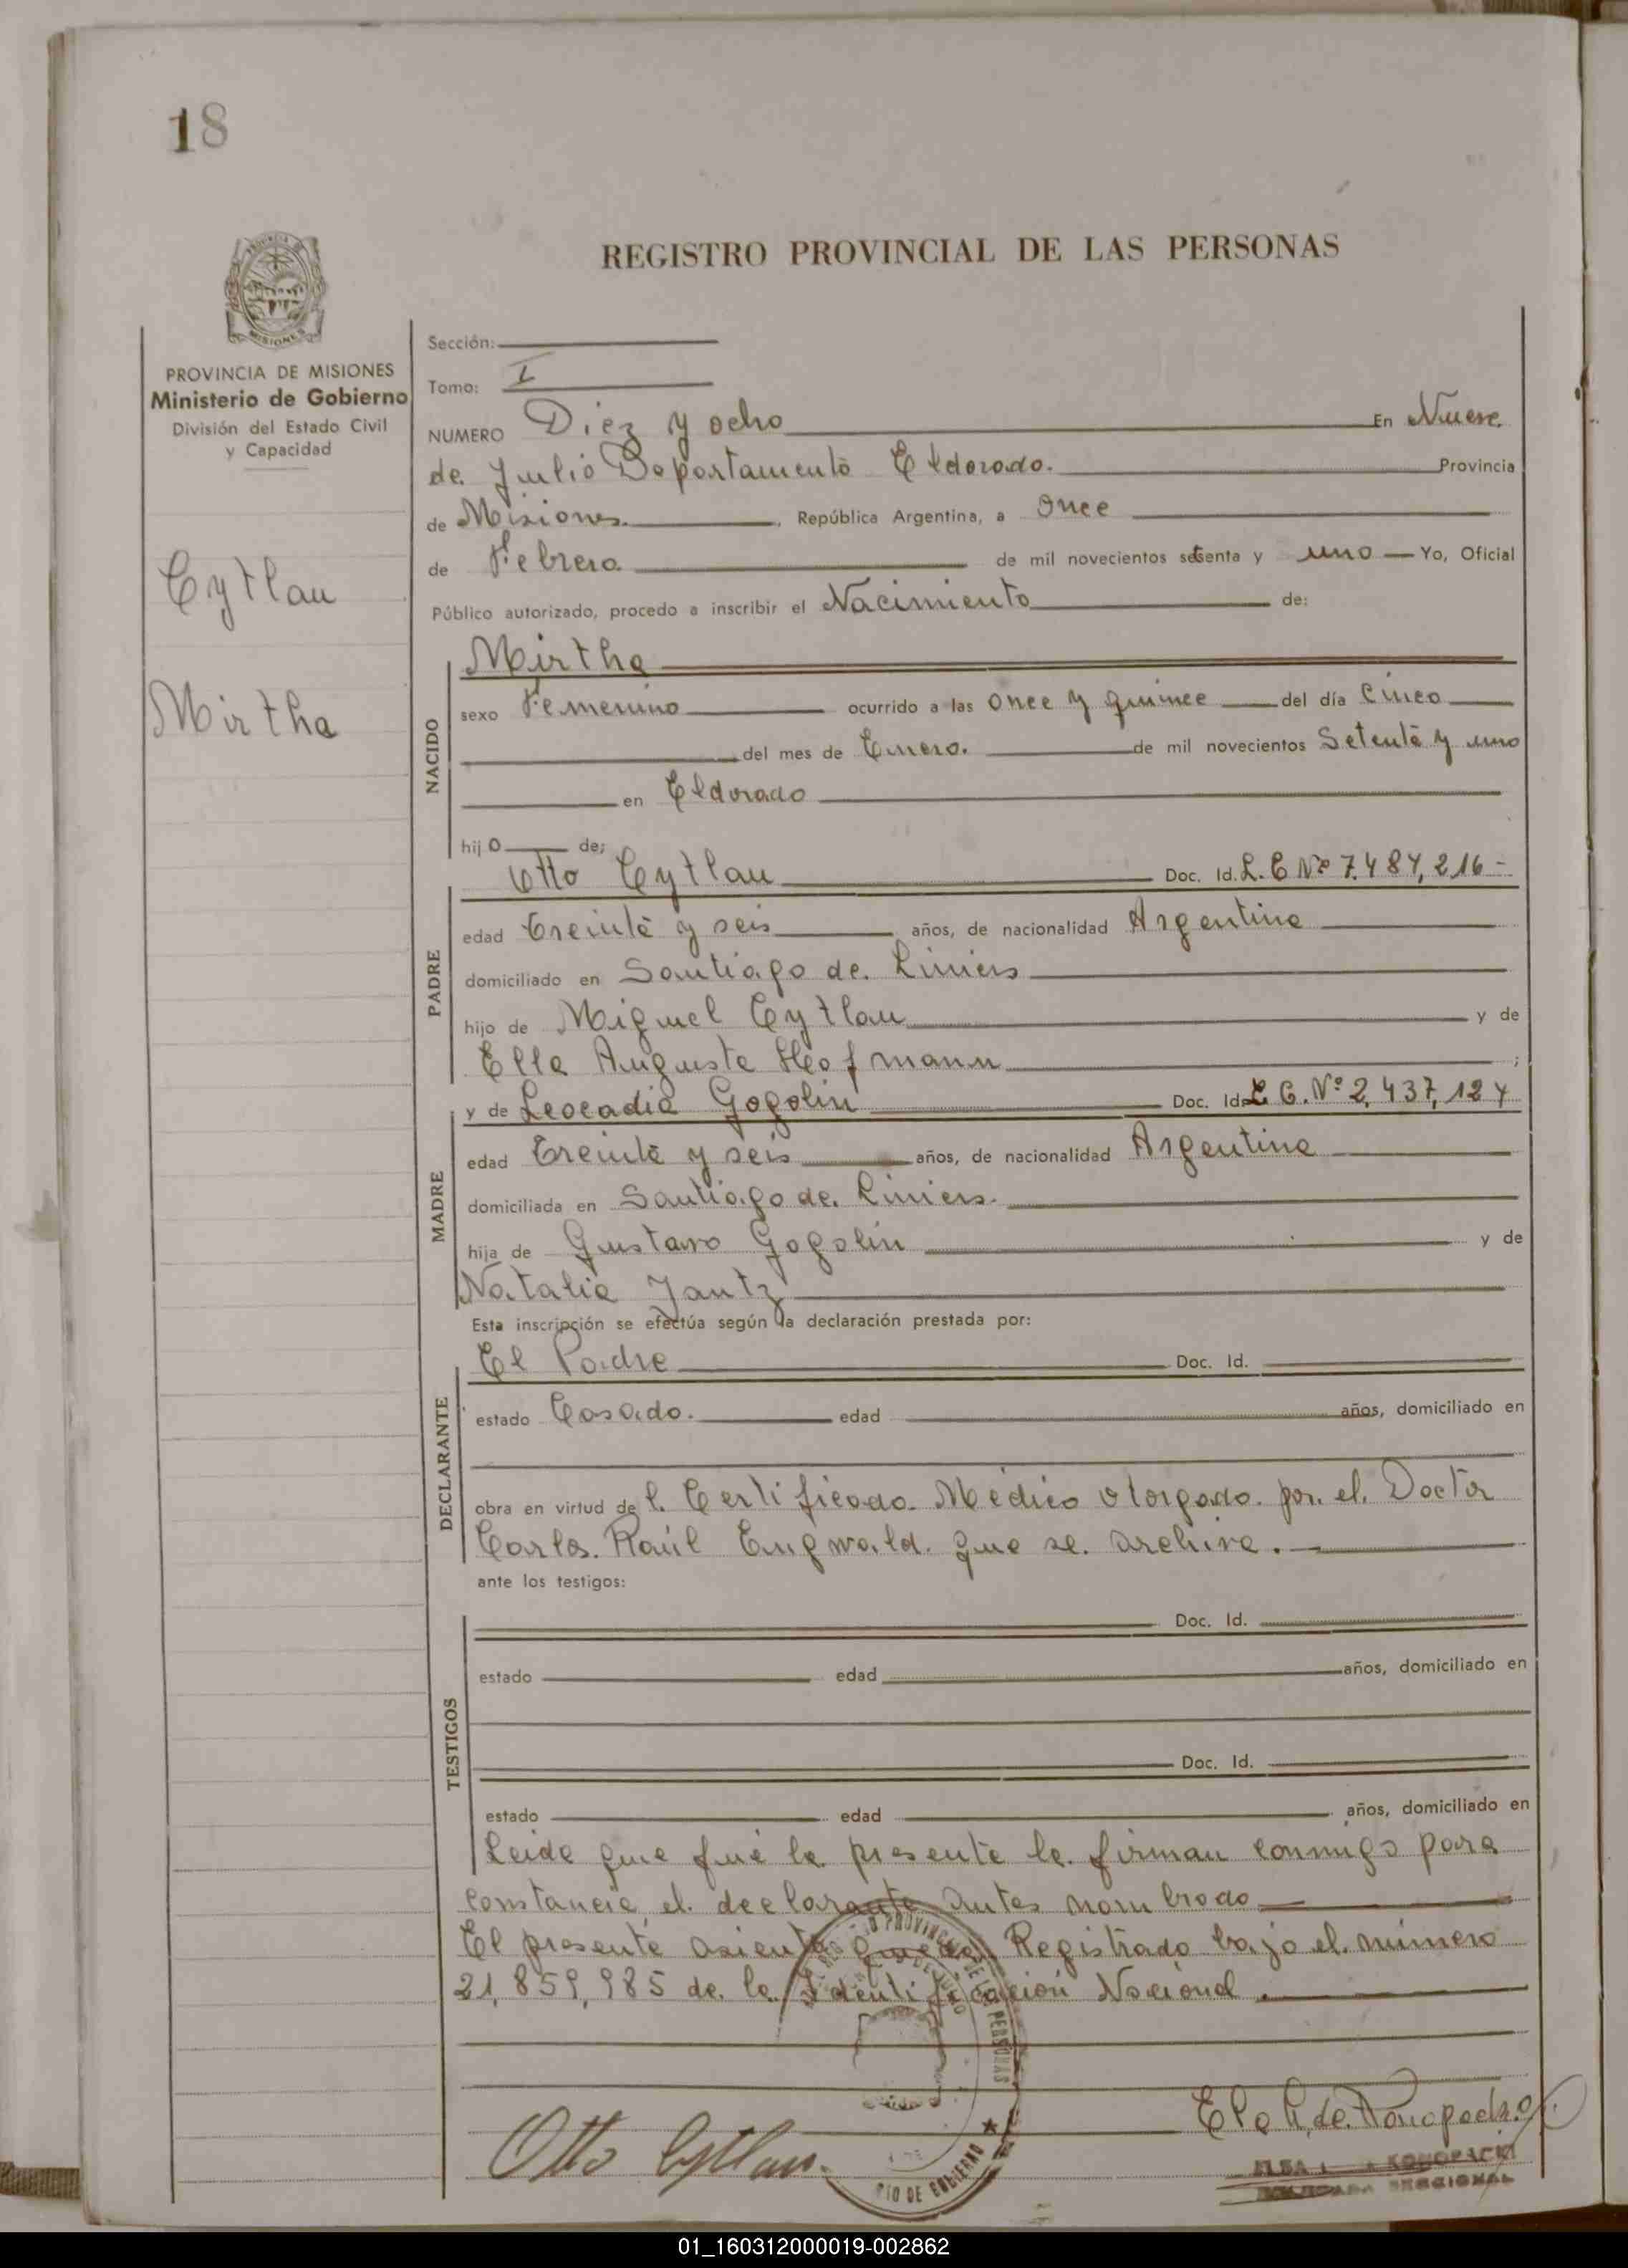 18
REGISTRO PROVINCIAL DE LAS PERSONAS
PROVINCIA DE MISIONES
Ministerio de Gobierno
División del Estado Civil
y Capacidad
Cytlau
Mirtha
Sección:
Tomo: I
NUMERO Diez y ocho En Nueve
de Julio Departamento Eldorado. Provincia
de Misiones. República Argentina, a Once
de Febrero de mil novecientos setenta y uno Yo, Oficial
Público autorizado, procedo a inscribir el Nacimiento de:
NACIDO
Mirtha
sexo Femenino ocurrido a las once y quince del día Cinco
del mes de Enero. de mil novecientos Setenta y uno
en Eldorado
hijo de;
PADRE
Otto Cytlau Doc. Id. L. E Nº 7.487,216-
edad Treinta y seis años, de nacionalidad Argentina
domiciliado en Santiago de Liniers
hijo de Miguel Cytlau y de
Ella Auguste Hofmann ;
MADRE
y de Leocadia Gogolin Doc. Id. L C. Nº 2,437,127
edad Treinta y seis años, de nacionalidad Argentina
domiciliada en Santiago de Liniers.
hija de Gustavo Gogolin y de
Natalia Jantz
Esta inscripción se efectúa según la declaración prestada por:
DECLARANTE
El Padre Doc. Id.
estado Casado. edad años, domiciliado en
obra en virtud del Certificado Médico otorgado por el Doctor
Carlos Raúl Engwald que se archiva.
ante los testigos:
TESTIGOS
Doc. Id.
estado edad años, domiciliado en
Doc. Id.
estado edad años, domiciliado en
Leida que fué la presente la firman conmigo para
constancia el declarante antes nombrado
El presente asiento queda Registrado bajo el número
21,859,985 de la Identificación Nacional.
Otto Cytlau
KONOPACKI
01_160312000019-002862